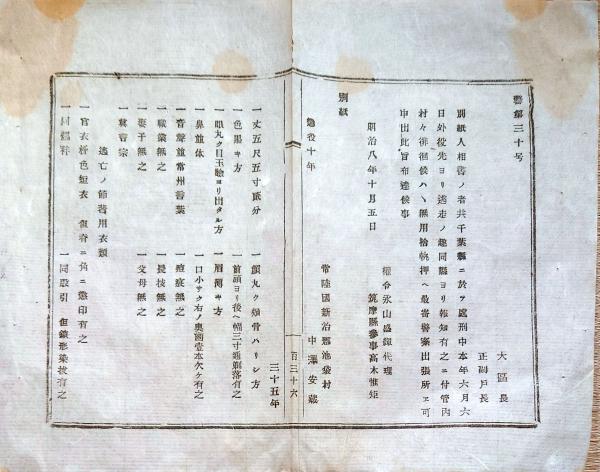 警第三十号
大區長
正副戸長
別紙人相書ノ者共千葉縣ニ於テ處刑中本年六月六
日外役先ヨリ逃走ノ趣同縣ヨリ報知有之ニ付管内
村々徘徊候ハヽ無用捨執押ヘ最寄警察出張所ヱ可
申出此旨布達候事
明治八年十月五日
權令永山盛輝代理
筑摩縣參事高木惟矩
別紙
常陸國新治郡池袋村
懲役十年 中澤安蔵
百三十六
三十五年
一丈五尺五寸貳分 一顔丸ク頬骨ハリシ方
一色黒キ方 一首頭ヨリ後ヘ幅三寸通剃落有之
一眼丸ク目玉ヨリ出タル方 一眉薄キ方
一鼻並体 一口小サク右ノ奥齒壹本欠ケ有之
一音聲並常州言葉 一疵痕無之
一職業無之 一長技無之
一妻子無之 一父母無之
一禅宗
逃亡ノ節着用衣類
一官衣柿色短衣 但脊ニ角ニ懲印有之
一同襦袢 一同股引 但鎖形染拔有之